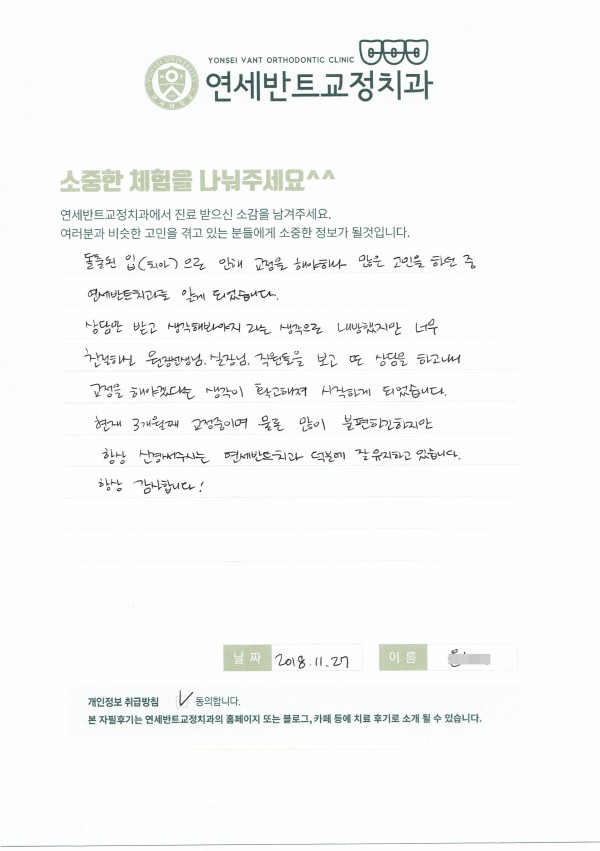 YONSEI VANT ORTHODONTIC CLINIC
연세반트교정치과
소중한 체험을 나눠주세요^^
연세반트교정치과에서 진료 받으신 소감을 남겨주세요.
여러분과 비슷한 고민을 겪고 있는 분들에게 소중한 정보가 될것입니다.
돌출된 입(치아)으로 인해 교정을 해야하나 많은 고민을 하던 중
연세반트치과를 알게 되었습니다.
상담만 받고 생각해봐야지 라는 생각으로 내방했지만 너무
친절하신 원장선생님, 실장님, 직원들을 보고 또 상담을 하고나니
교정을 해야겠다는 생각이 확고해져 시작하게 되었습니다.
현재 3개월째 교정중이며 물론 많이 불편하긴하지만
항상 신경써주시는 연세반트치과 덕분에 잘 유지하고 있습니다.
항상 감사합니다!
날 짜 2018.11.27 이 름
개인정보 취급방침 ✓ 동의합니다.
본 자필후기는 연세반트교정치과의 홈페이지 또는 블로그, 카페 등에 치료 후기로 소개 될 수 있습니다.